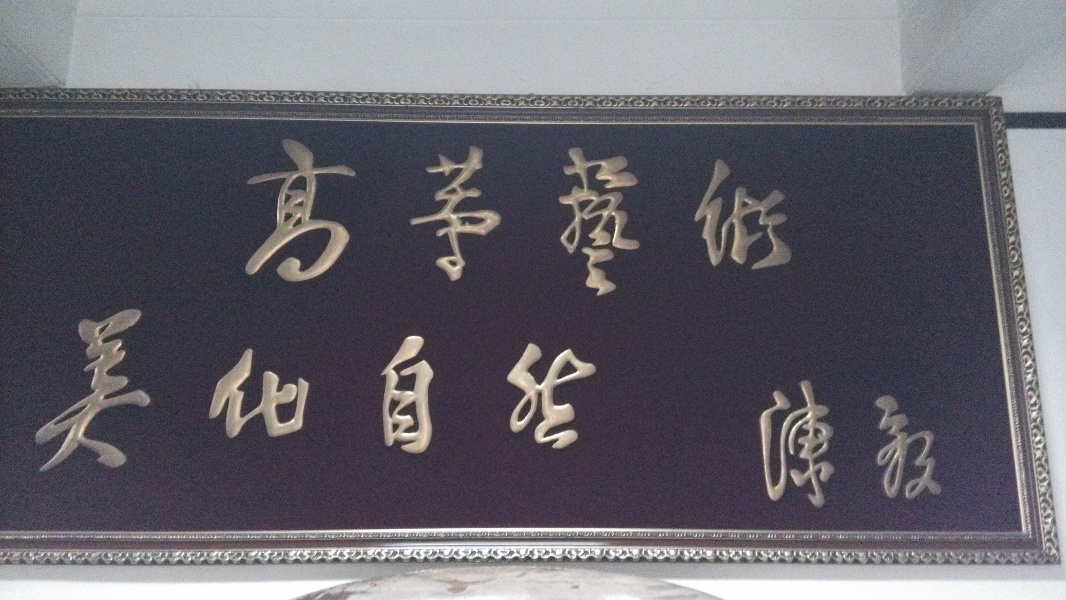 高等藝術
美化自然
陳毅